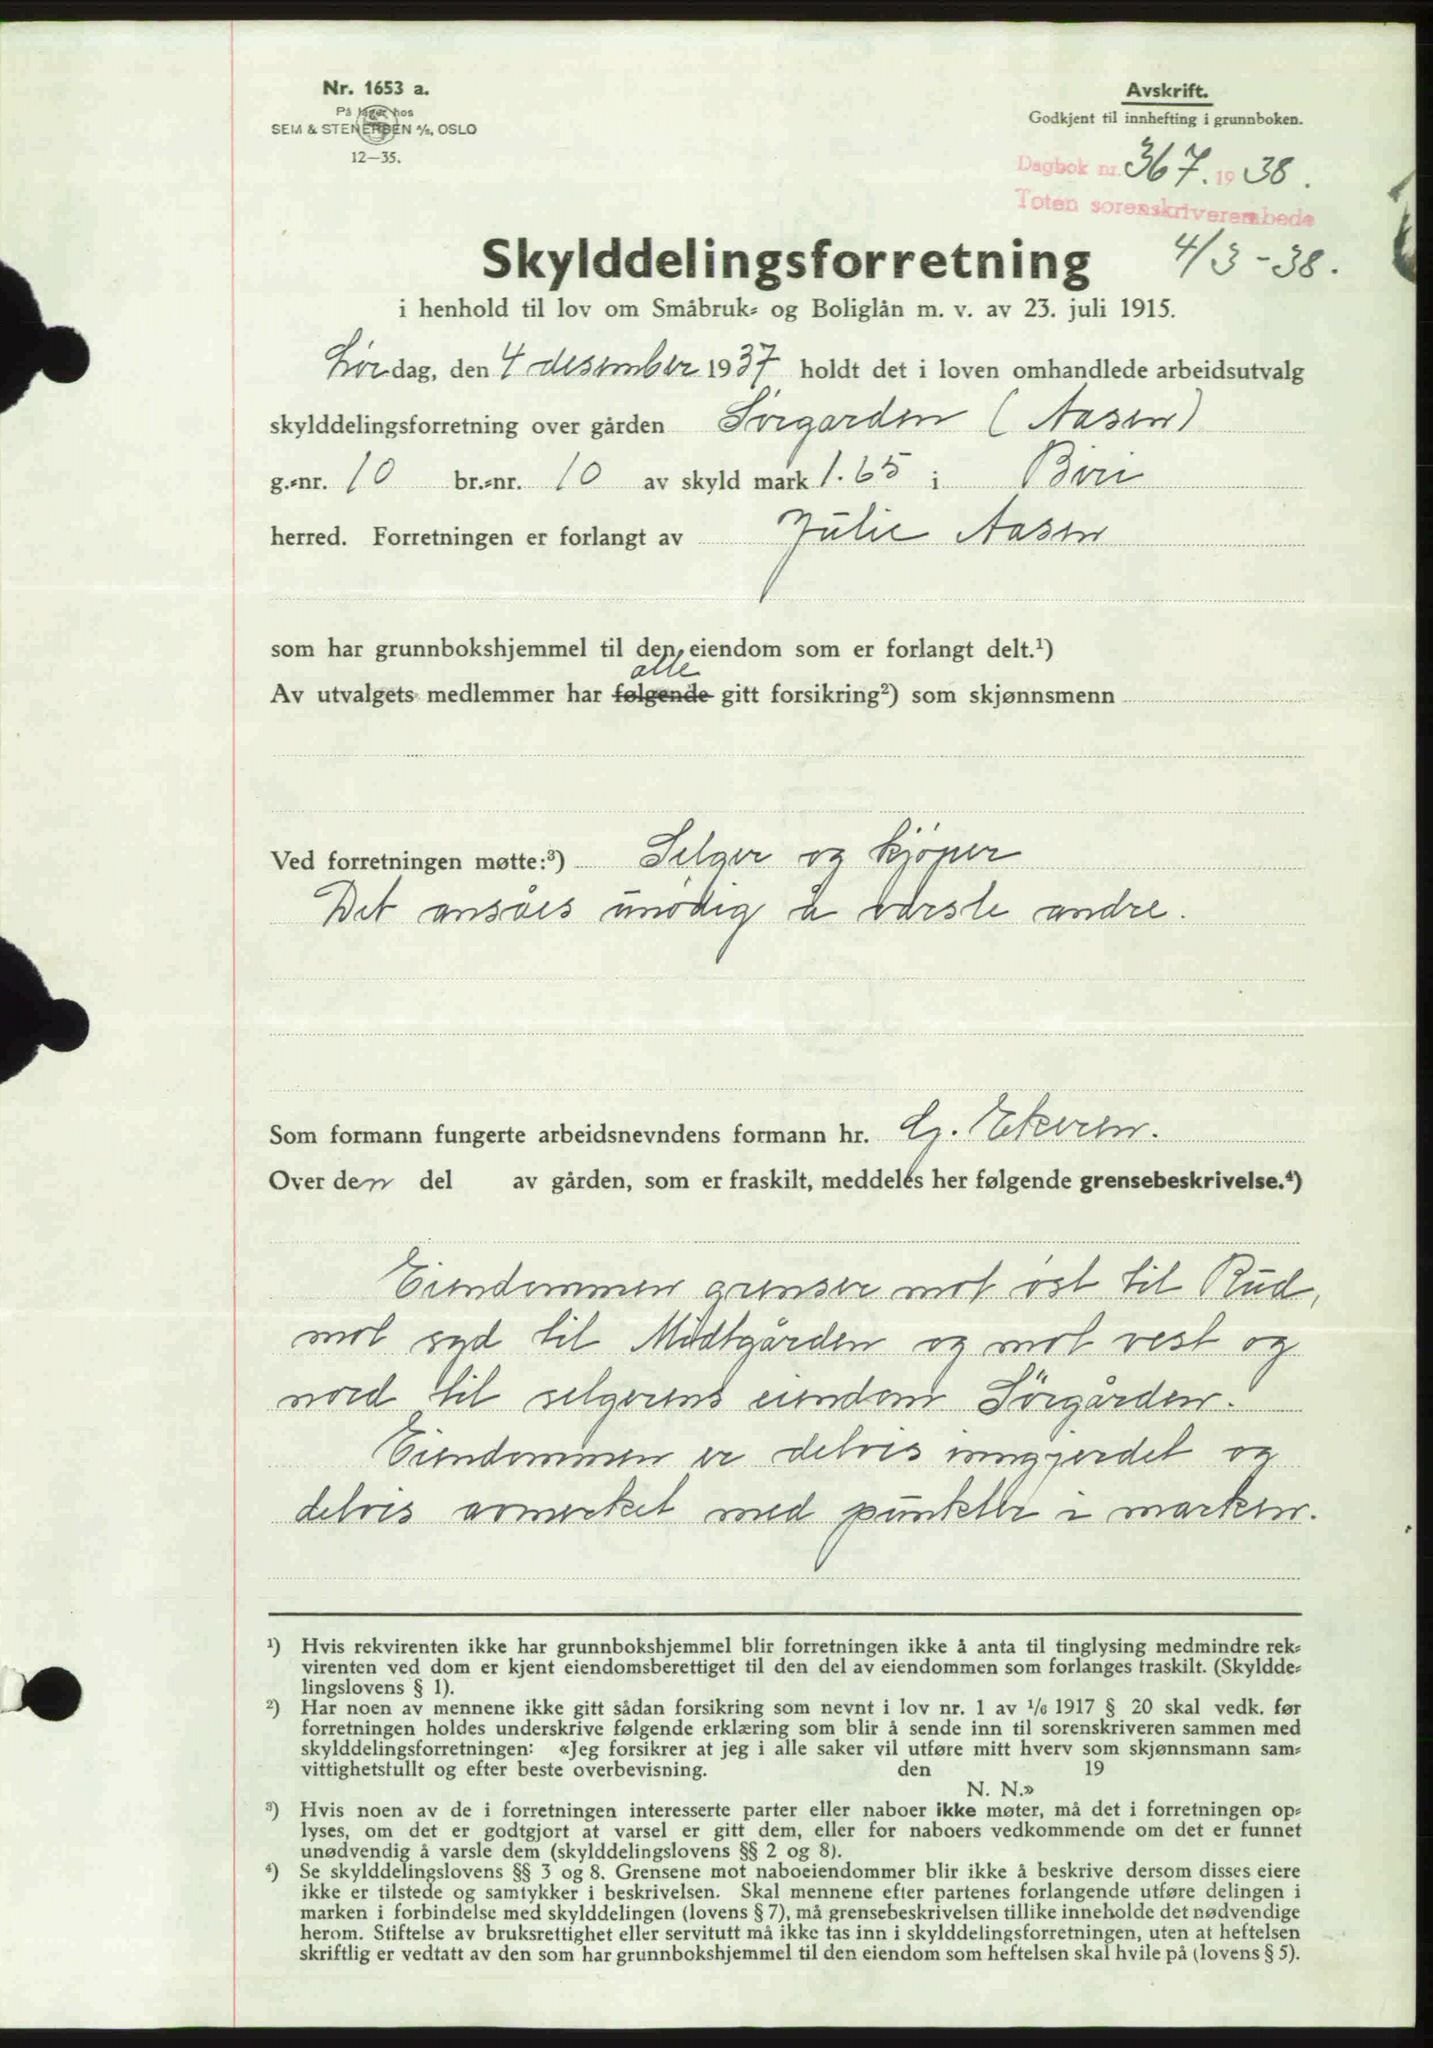 Nr. 1653 a.
På lager hos
SEM & STENERSEN A/S, OSLO
12—35.
Avskrift.
Godkjent til innhefting i grunnboken.
Dagbok nr. 367. 1938.
Toten sorenskriverembede
4/3-38.
Skylddelingsforretning
i henhold til lov om Småbruk= og Boliglån m. v. av 23. juli 1915.
Lørdag, den 4 desember 1937 holdt det i loven omhandlede arbeidsutvalg
skylddelingsforretning over gården Sørgarden (Aasen)
g.=nr. 10 br.=nr. 10 av skyld mark 1.65 i Biri
herred. Forretningen er forlangt av Julie Aasen
som har grunnbokshjemmel til den eiendom som er forlangt delt.¹)
alle
Av utvalgets medlemmer har følgende gitt forsikring²) som skjønnsmenn
Ved forretningen møtte:³) Selger og kjøper
Det ansåes unødig å varsle andre.
Som formann fungerte arbeidsnevndens formann hr. G. Ekeren.
Over den del av gården, som er fraskilt, meddeles her følgende grensebeskrivelse.⁴)
Eiendommen grenser mot øst til Rud,
mot syd til Midtgården og mot vest og
nord til selgerens eiendom Sørgården.
Eiendommen er delvis inngjerdet og
delvis avmerket med punkter i marken.
¹) Hvis rekvirenten ikke har grunnbokshjemmel blir forretningen ikke å anta til tinglysing medmindre rek=
virenten ved dom er kjent eiendomsberettiget til den del av eiendommen som forlanges fraskilt. (Skyldde=
lingslovens § 1).
²) Har noen av mennene ikke gitt sådan forsikring som nevnt i lov nr. 1 av 1/6 1917 § 20 skal vedk. før
forretningen holdes underskrive følgende erklæring som blir å sende inn til sorenskriveren sammen med
skylddelingsforretningen: «Jeg forsikrer at jeg i alle saker vil utføre mitt hverv som skjønnsmann sam=
vittighetsfullt og efter beste overbevisning. den 19
N. N.»
³) Hvis noen av de i forretningen interesserte parter eller naboer ikke møter, må det i forretningen op=
lyses, om det er godtgjort at varsel er gitt dem, eller for naboers vedkommende om det er funnet
unødvendig å varsle dem (skylddelingslovens §§ 2 og 8).
⁴) Se skylddelingslovens §§ 3 og 8. Grensene mot naboeiendommer blir ikke å beskrive dersom disses eiere
ikke er tilstede og samtykker i beskrivelsen. Skal mennene efter partenes forlangende utføre delingen i
marken i forbindelse med skylddelingen (lovens § 7), må grensebeskrivelsen tillike inneholde det nødvendige
herom. Stiftelse av bruksrettighet eller servitutt må ikke tas inn i skylddelingsforretningen, uten at heftelsen
skriftlig er vedtatt av den som har grunnbokshjemmel til den eiendom som heftelsen skal hvile på (lovens § 5).